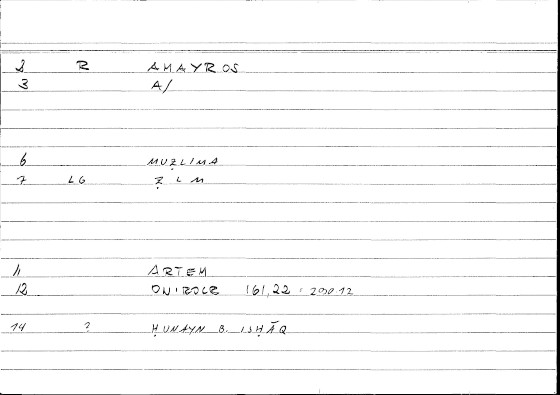 2 R AMAYROS
3 A/
6 MUẒLIMA
7 LG Ẓ L M
11 ARTEM
12 ONIROCR 161,22 : 200.12
14 ? ḤUNAYN B. ISḤĀQ